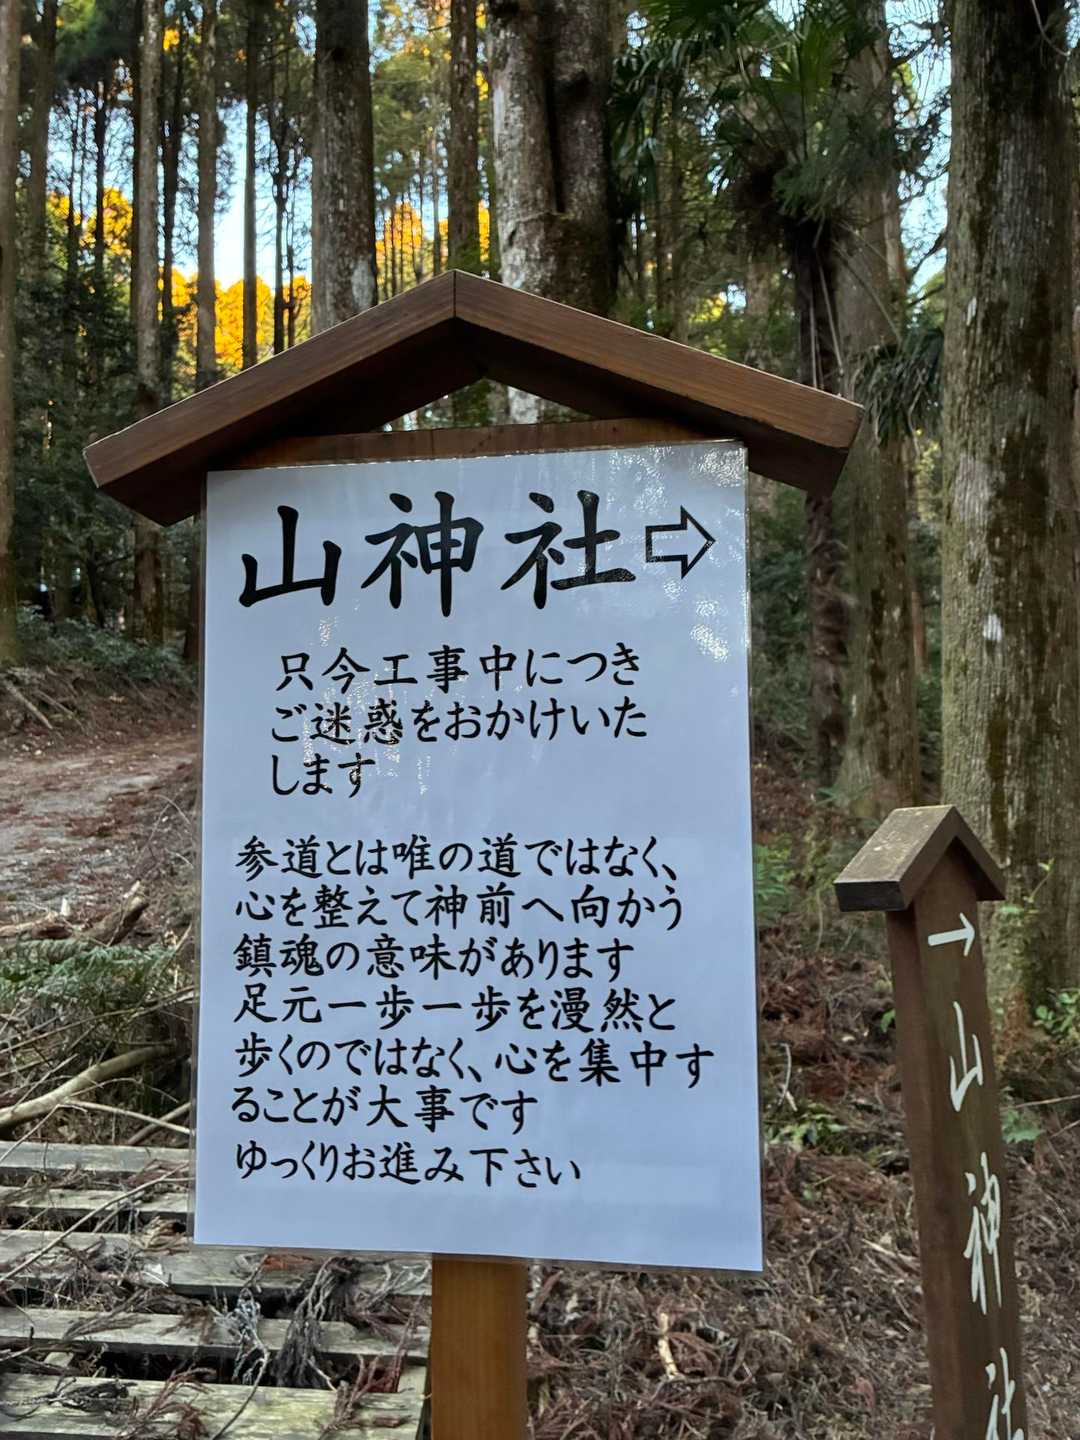 山神社⇨
只今工事中につき
ご迷惑をおかけいた
します
参道とは唯の道ではなく、
心を整えて神前へ向かう
鎮魂の意味があります
足元一歩一歩を漫然と
歩くのではなく、心を集中す
ることが大事です
ゆっくりお進み下さい
→山神社